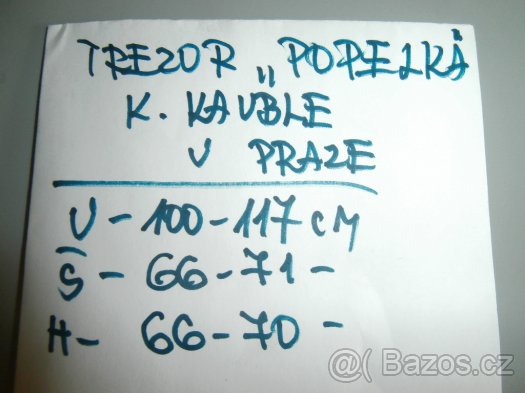 TREZOR „POPELKA"
K. KAUBLE
V PRAZE
V - 100 - 117 CM
Š - 66 - 71 -
H - 66 - 70 -
@( Bazos.cz